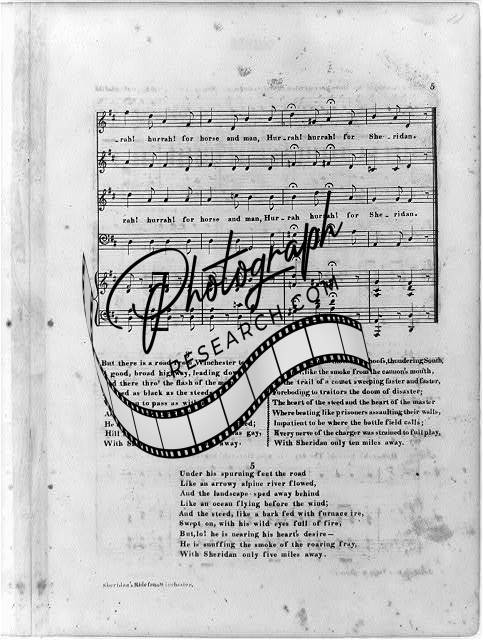 5
_rah! hurrah! for horse and man, Hur_rah! hurrah! for She_ridan.
rah! hurrah! for horse and man, Hur_rah hurrah! for She_ridan.
Photograph
RESEARCH.COM
But there is a road Winchester
good, broad leading
there thro' the flash of the
as black as the steed
to pass as
He
Hill gay,
With away.
hoofs, thundering South,
like the smoke from the cannon's mouth,
the trail of a comet sweeping faster and faster,
Foreboding to traitors the doom of disaster;
The heart of the steed and the heart of the master
Where beating like prisoners assaulting their walls,
Impatient to be where the battle field calls;
Every nerve of the charger was strained to full play,
With Sheridan only ten miles away.
5
Under his spurning feet the road
Like an arrowy alpine river flowed,
And the landscape sped away behind
Like an ocean flying before the wind;
And the steed, like a bark fed with furnace ire,
Swept on, with his wild eyes full of fire;
But, lo! he is nearing his heart's desire—
He is snuffing the smoke of the roaring fray,
With Sheridan only five miles away.
Sheridan's Ride from Winchester.